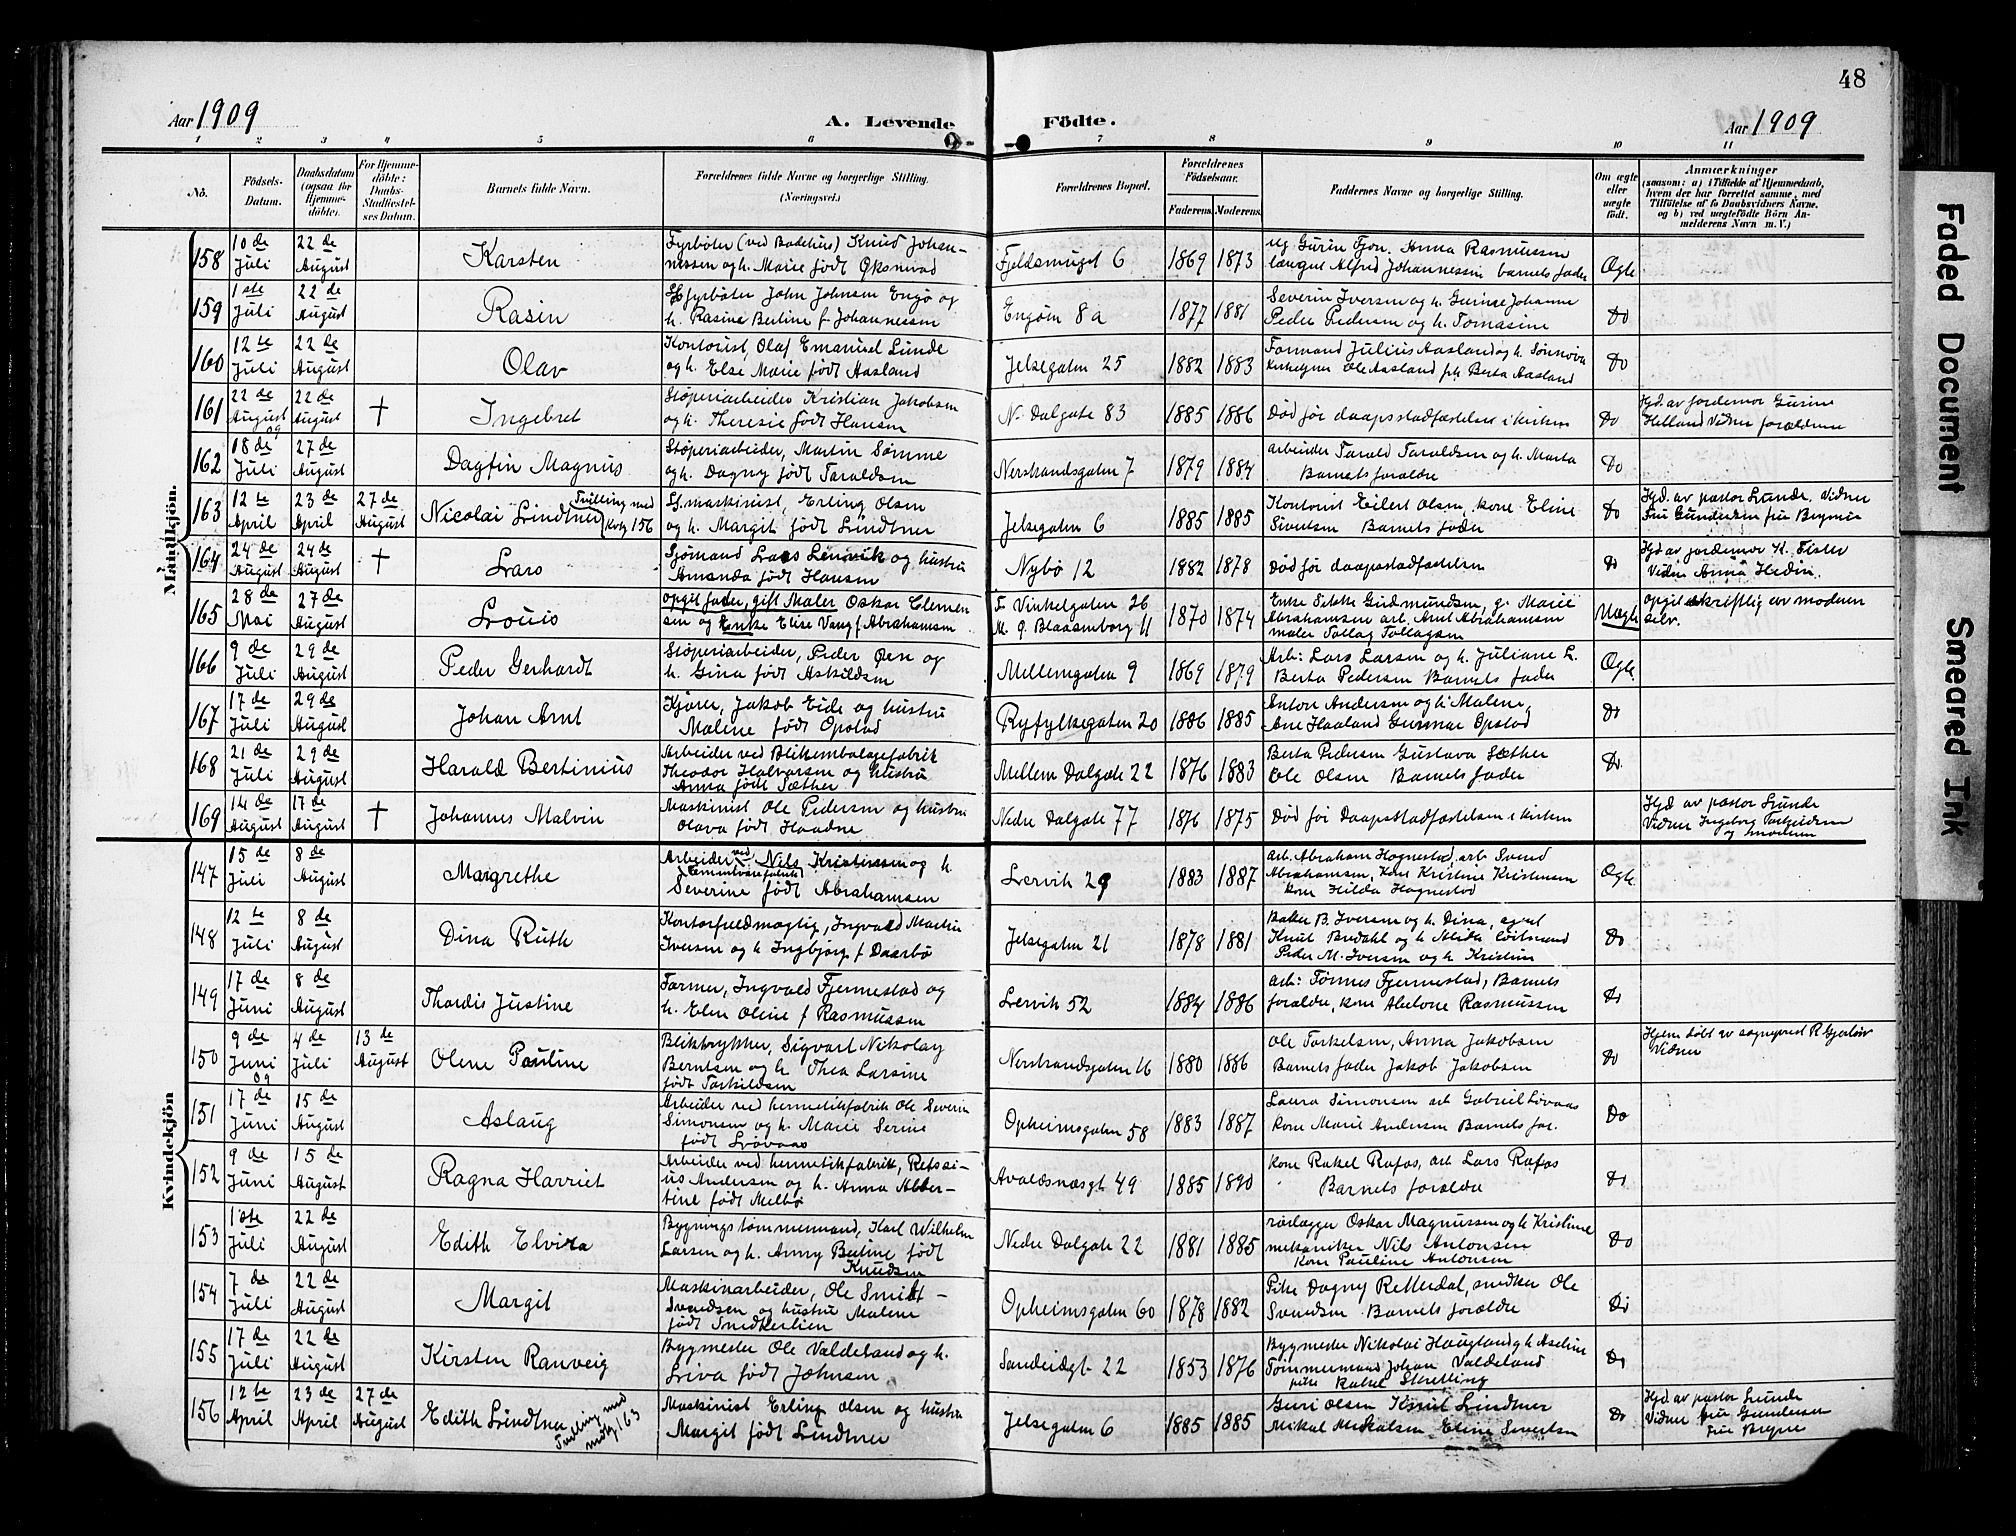 48
Aar 1909
A. Levende Födte.
Aar 1909
1 2 3 4 5 6 7 8 9 10 11
No.
Födsels-Datum.
Daabsdatum (ogsaa for Hjemme-döbte).
For Hjemme-döbte: Daabs-Stadfæstel-ses Datum.
Barnets fulde Navn.
Forældrenes fulde Navne og borgerlige Stilling. (Næringsvei.)
Forældrenes Bopæl.
Forældrenes Födselsaar.
Faderens. Moderens.
Faddernes Navne og borgerlige Stilling.
Om ægte eller uægte födt.
Anmærkninger
(saasom: a) i Tilfælde af Hjemmedaab, hvem der har forrettet samme, med Tilföielse af to Daabsvidners Navne, og b) ved uægtefödte Börn An-melderens Navn m. V.)
Mandkjön.
158 10de Juli 22de August Karsten
Fyrbøter (ved Badehus) Knud Johan-
nessen og h. Marie født Øksnevad
Fjeldsmuget 6 1869 1873
Anna Rasmussen
Alfred Johannessen barnets fader
Ægte
159 1ste Juli 22de August Rasin
fyrbøter John Johnsen Engø og
h. Rasine Bertine f. Johannessen
Engøen 8a 1877 1881
Severin Iversen og h. Gurine Johanne
Peder Pedersen og h. Tomasine
Do
160 12te Juli 22de August Olav
Kontorist, Olaf Emanuel Lunde
og h. Else Marie født Aasland
Jelsegaten 25 1882 1883
Formand Julius Aasland og h. Sønneva
Ole Aasland frk Berta Aasland
Do
161 22de August 09 22de August † Ingebret
Støperiarbeider Kristian Jakobsen
og h. Theresie født Hansen
N. Dalgate 83 1885 1886
Død før daapsstadfæstelsen i kirken
Do
Hjd. av jordemor Gurine
Helland Vidner forældrene
162 18de Juli 27de August Dagfin Magnus
Støperiarbeider, Martin Sømme
og h. Dagny født Taraldsen
Nerstrandsgaten 7 1879 1884
arbeider Tarald Taraldsen og h. Marta
Barnets forældre
Do
163 12te April 23de April 27de August Nicolai Lindtner
Tvilling med
156
maskinist, Erling Olsen
og h. Margit født Lindtner
Jelsegaten 6 1885 1885
Kontorist Eilert Olsen, kone Eline
Sivertsen Barnets fader
Do
Hjd. av pastor Lunde. Vidner
Fru Gundersen fru Bryne
164 24de August 24de August † Lars
Sjømand Lars Lenvik og hustru
Amanda født Hansen
Nybø 12 1882 1878
Død før daapsstadfæstelsen
Do
Hjd av jordemor K. Tister
Vidne Anna Hedin.
165 28de Mai 27de August Louis
opgit fader, gift Maler Oskar Clemen
sen og Enke Elise Vang f Abrahamsen
F. Vinkelgaten 26
M. g. Blaasenborg 11
1870 1874
Enke Gudmundsen, g. Marie
Abrahamsen arb. Arnt Abrahamsen
maler Tollag Tollagsen
Uægte
opgit skriftlig av moderen
selv.
166 9de Juli 29de August Peder Gerhardt
Støperiarbeider, Peder Øen og
h. Gina født Askildsen
Mellemgaten 9 1869 1879
Arb: Lars Larsen og h. Juliane L.
Berta Pedersen Barnets fader
Ægte
167 17de Juli 29de August Johan Arnt
Kjører, Jakob Eide og hustru
Malene født Opstad
Ryfylkegaten 20 1886 1885
Anton Andersen og h Malene,
Ane Haaland Gunnar Opstad
Do
168 21de Juli 29de August Harald Bertinius
Arbeider ved Blikemballagefabrik
Theodor Halvorsen og hustru
Anna født Sæther
Mellem Dalgate 22 1876 1883
Berta Pedersen Gustava Sæther
Ole Olsen Barnets fader
Do
169 14de August 17de August † Johannes Malvin
Maskinist Ole Pedersen og hustru
Olava født Haadne
Nedre Dalgate 77 1876 1875
Død før Daapsstadfæstelsen i kirken
Hjd av pastor Lunde
Vidner Ingeborg Torkeidsen
og moderen
Kvindekjön
147 15de Juli 8de August Margrethe
Arbeider ved Nils Kristensen og h.
Severine født Abrahamsen
Lervik 29 1883 1887
arb. Abraham Hognestad, arb Svend
Abrahamsen, Kone Kristine Kristensen
kone Hilda Hognestad
Ægte
148 12te Juli 8de August Dina Ruth
Kontorfuldmægtig, Ingvald Martin
Iversen og h Ingbjørg f Daarbø
Jelsegaten 21 1878 1881
Baker B. Iversen og h. Dina, agent
Knut Bredahl og h Alida
Peder M. Iversen og h Kristine
Do
149 17de Juni 8de August Thordis Justine
Farmer, Ingvald Fjermestad og
h. Elen Oline f Rasmussen
Lervik 52 1884 1886
arb: Tønnes Fjermestad, Barnets
forældre, kone Rasmussen
Do
150 9de Juni 09 4de Juli 13de August Olene Pauline
Bliktrykker, Sigvart Nikolay
Berntsen og h Thea Larsine
født Torkildsen
Nerstrandsgaten 16 1880 1886
Ole Torkelsen, Anna Jakobsen
Barnets fader Jakob Jakobsen
Do
Hjem døbt av sogneprest R Gjerløv
Vidner
151 17de Juni 15de August Aslaug
Arbeider ved hermetikfabrik Ole Severin
Simonsen og h. Marie Serine
født Løvaas
Opheimsgaten 58 1883 1887
Laura Simonsen arb Gabriel Løvaas
kone Marie Andersen Barnets far.
Do
152 9de Juni 15de August Ragna Harriet
Arbeider ved hermetikfabrik, Refsai-
us Andersen og h. Anna Alber-
tine født Melbø
Avaldsnæsgt 49 1885 1890
kone Rakel Rafos, arb Lars Rafos
Barnets forældre
Do
153 1ste Juli 22de August Edith Elvira
Bygningstømmermand, Karl Wilhelm
Larsen og h. Anny Bertine født
Knudsen
Nedre Dalgate 22 1881 1885
rørlægger Oskar Magnussen og h Kristine
mekaniker Nils Antonsen
kone Pauline Antonsen
Do
154 7de Juli 22de August Margit
Maskinarbeider, Ole Smitt-
Svendsen og hustru Malene
født Snedkerlien
Opheimsgaten 60 1878 1882
Pike Dagny Retterdal, snedker Ole
Svendsen Barnets forældre
Do
155 17de Juli 22de August Kirsten Ranveig
Bygmester Ole Valdeland og h.
Lina født Johnsen
Sandeidgt 22 1853 1876
Bygmester Nikolai Haugland og h Aseline
Tømmermand Johan Valdeland
pike Rakel Skretting
Do
156 12te April 23de April 27de August Edith Lindtner
Tvilling med
163
Maskinist Erling Olsen og hustru
Margit født Lindtner
Jelsegaten 6 1885 1885
Guri Olsen Knut Lindtner
Mikal Mikalsen Eline Sivertsen
Do
Hjd av pastor Lunde
Vidner fru Gundersen
Fru Bryne
Faded Document
Smeared Ink